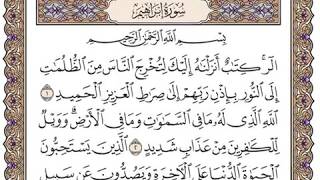 سُورَةُ إِبْرَاهِيمَ
بِسْمِ ٱللَّهِ ٱلرَّحْمَٰنِ ٱلرَّحِيمِ
الٓر ۚ كِتَٰبٌ أَنزَلْنَٰهُ إِلَيْكَ لِتُخْرِجَ ٱلنَّاسَ مِنَ ٱلظُّلُمَٰتِ
إِلَى ٱلنُّورِ بِإِذْنِ رَبِّهِمْ إِلَىٰ صِرَٰطِ ٱلْعَزِيزِ ٱلْحَمِيدِ ١
ٱللَّهِ ٱلَّذِى لَهُۥ مَا فِى ٱلسَّمَٰوَٰتِ وَمَا فِى ٱلْأَرْضِ ۗ وَوَيْلٌ
لِّلْكَٰفِرِينَ مِنْ عَذَابٍ شَدِيدٍ ٢ ٱلَّذِينَ يَسْتَحِبُّونَ
ٱلْحَيَوٰةَ ٱلدُّنْيَا عَلَى ٱلْـَٔاخِرَةِ وَيَصُدُّونَ عَن سَبِيلِ